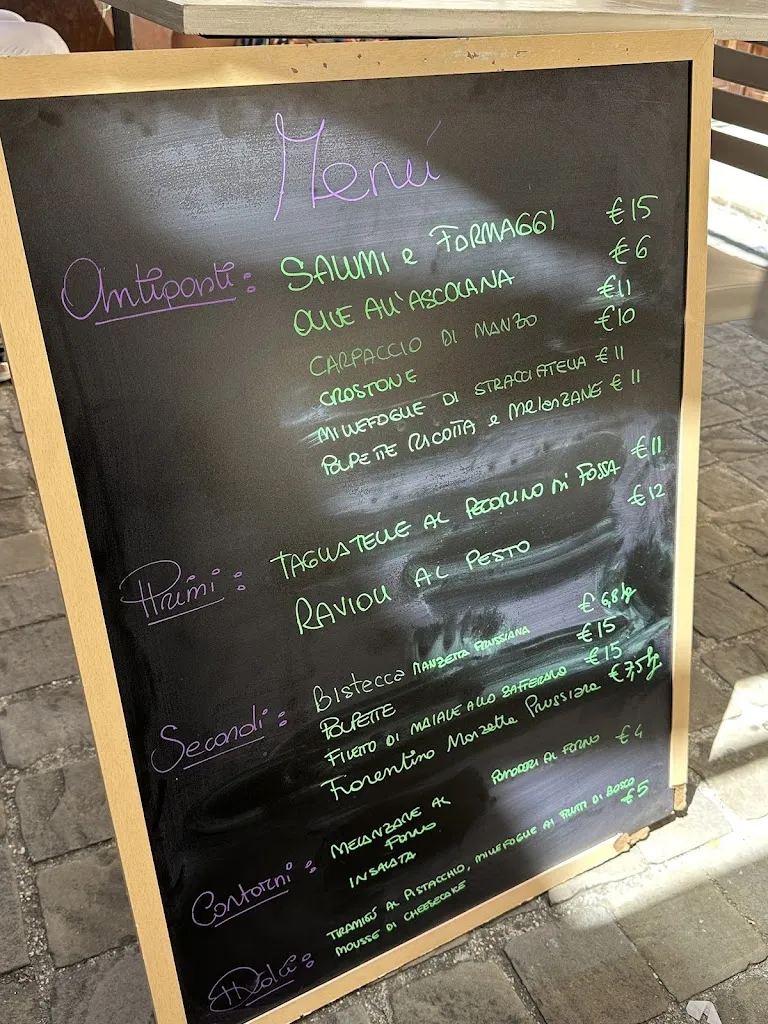 Menú
Antipasti: SALUMI e FORMAGGI €15
OLIVE ALL'ASCOLANA €6
CARPACCIO DI MANZO €11
CROSTONE €10
MILLEFOGLIE DI STRACCIATELLA €11
POLPETTE RICOTTA e MELANZANE €11
Primi: TAGLIATELLE AL PECORINO DI FOSSA €11
RAVIOLI AL PESTO €12
Secondi: Bistecca MANZETTA PRUSSIANA € 6,8 hg
POLPETTE €15
FILETTO DI MAIALE ALLO ZAFFERANO €15
Fiorentina Manzetta Prussiana €7,5 hg
Contorni: MELANZANE AL FORNO POMODORI AL FORNO €4
INSALATA
Dolci: TIRAMISÚ AL PISTACCHIO, MILLEFOGLIE AI FRUTTI DI BOSCO €5
MOUSSE DI CHEESECAKE